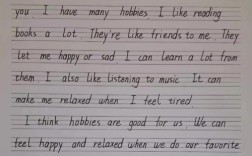 you. I have many hobbies. I like reading
books a lot. They're like friends to me. They
let me happy or sad. I can learn a lot from
them. I also like listening to music. It can
make me relaxed when I feel tired.
I think hobbies are good for us. We can
feel happy and relaxed when we do our favorite